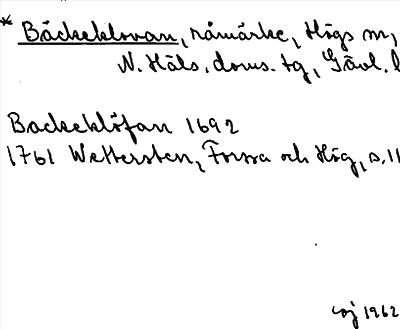 * Bäckeklovan, råmärke, Högs m,
N. Häls. doms. tg, Gävl. l
Backeklöfan 1692
1761 Wettersten, Forssa och Hög, s. 11
1962